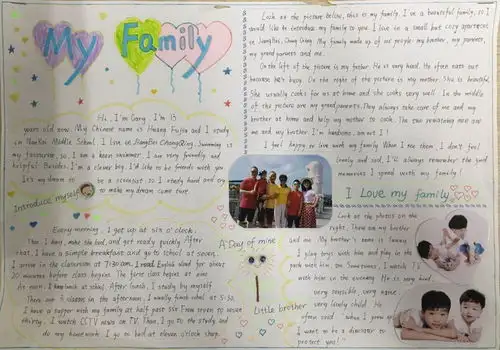 My Family
Hi, I'm Gary. I'm 13
years old now. My Chinese name is Huang Fujie and I study
in Nankai Middle School. I live in JiangBei ChongQing. Swimming is
my favourite, so I am a keen swimmer. I am very friendly and
helpful. Besides, I'm a clever boy. I'd like to be friends with you.
It's my dream to be a scientist, so I study hard and try
to make my dream come true.
Introduce myself
Every morning, I get up at six o'clock.
Then, I make the bed and get ready quickly. After
that, I have a simple breakfast and go to school at seven.
I arrive in the classroom at 7:30 a.m. I read English aloud for about
20 minutes before class begins. The first class begins at nine.
At noon, I back at school. After lunch, I study by myself.
There are 3 classes in the afternoon. I usually finish what at 5:30.
I have a supper with my family at half past six. From seven to seven
thirty, I watch CCTV news on TV. Then, I go to the study and
do my homework. I go to bed at eleven o'clock sharp.
A Day of mine
Look at the picture below, this is my family. I've a beautiful family, so I
should like to introduce my family to you. I love in a small but cozy apartment
in JiangBei, Chong Qing. My family made up of six people: my brother, my parents,
my grandparents and me.
On the left of the picture is my father. He is very hard. He often eats out
because he's busy. On the right of the picture is my mother. She is beautiful.
She usually cooks for us at home and she cooks very well. In the middle
of the picture are my grandparents. They always take care of me and my
brother at home and help my mother to cook. The two remaining men are
me and my brother. I'm handsome, am not I?
I feel happy to live with my family. When I see them, I don't feel
lonely and sad. I'll always remember the good
memories I spend with my family!
I Love my family
Look at the photos on the
right. There are my brother
and me. My brother's name is
I play toys with him and play in the
park with him, too. Sometimes, I watch TV
with him in the evening. He is very kind,
very sensible, very naive
very lovely child. He
often said: "when I grow up
I want to be a dinosaur to
protect you!"
Little brother